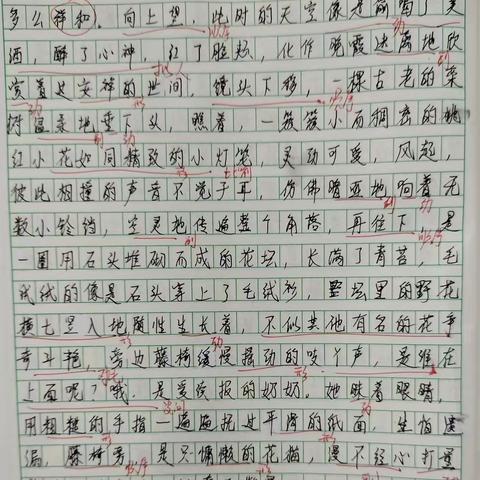 多么祥和。向上望,此时的天空像是偷喝了美
酒,醉了心神,红了脸颊,化作晚霞迷离地欣
赏着这安祥的世间,镜头下移,一棵古老的
树温柔地垂下头,瞧着,一簇簇小而稠密的桃
红小花如同精致的小灯笼,灵动可爱,风起,
彼此相撞的声音不觉于耳,仿佛暗哑地响着无
数小铃铛,空灵地传遍整个角落,再往下,是
一圈用石头堆砌而成的花坛,长满了青苔,毛
绒绒的像是石头穿上了毛绒衫,整坛里的野花
横七竖八地随性生长着,不似其他有名的花争
奇斗艳,旁边藤椅缓慢摇动的吱丫声,是谁在
上面呢?哦,是爱读报的奶奶,她眯着眼睛,
用粗糙的手指一遍遍抚过平滑的纸面,生怕
漏,藤椅旁,是只慵懒的花猫,漫不经心打量